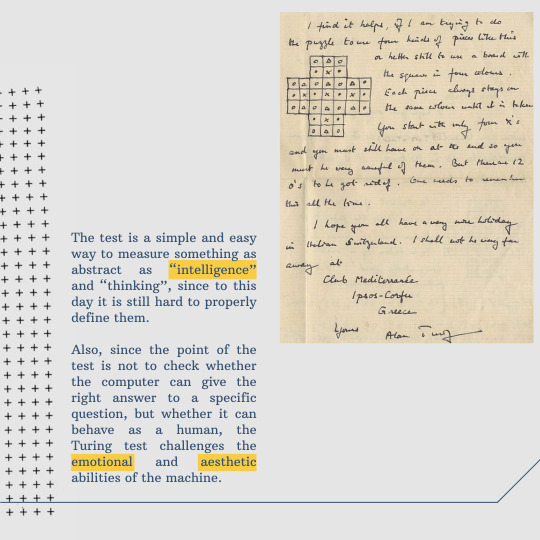 The test is a simple and easy
way to measure something as
abstract as “intelligence”
and “thinking”, since to this
day it is still hard to properly
define them.
Also, since the point of the
test is not to check whether
the computer can give the
right answer to a specific
question, but whether it can
behave as a human, the
Turing test challenges the
emotional and aesthetic
abilities of the machine.
I find it helps, if I am trying to do
the puzzle to use four kinds of pieces like this
or better still to use a board with
the squares in four colours.
Each piece always stays on
the same colour until it is taken
You start with only four x's
and you must still have one at the end so you
must be very careful of them. But there are 12
o's to be got rid of. One needs to remember
this all the time.
I hope you all have a very nice holiday
in Italian Switzerland. I shall not be very far
away at
Club Mediterranée
Ipsos-Corfu
Greece
Yours
Alan Turing